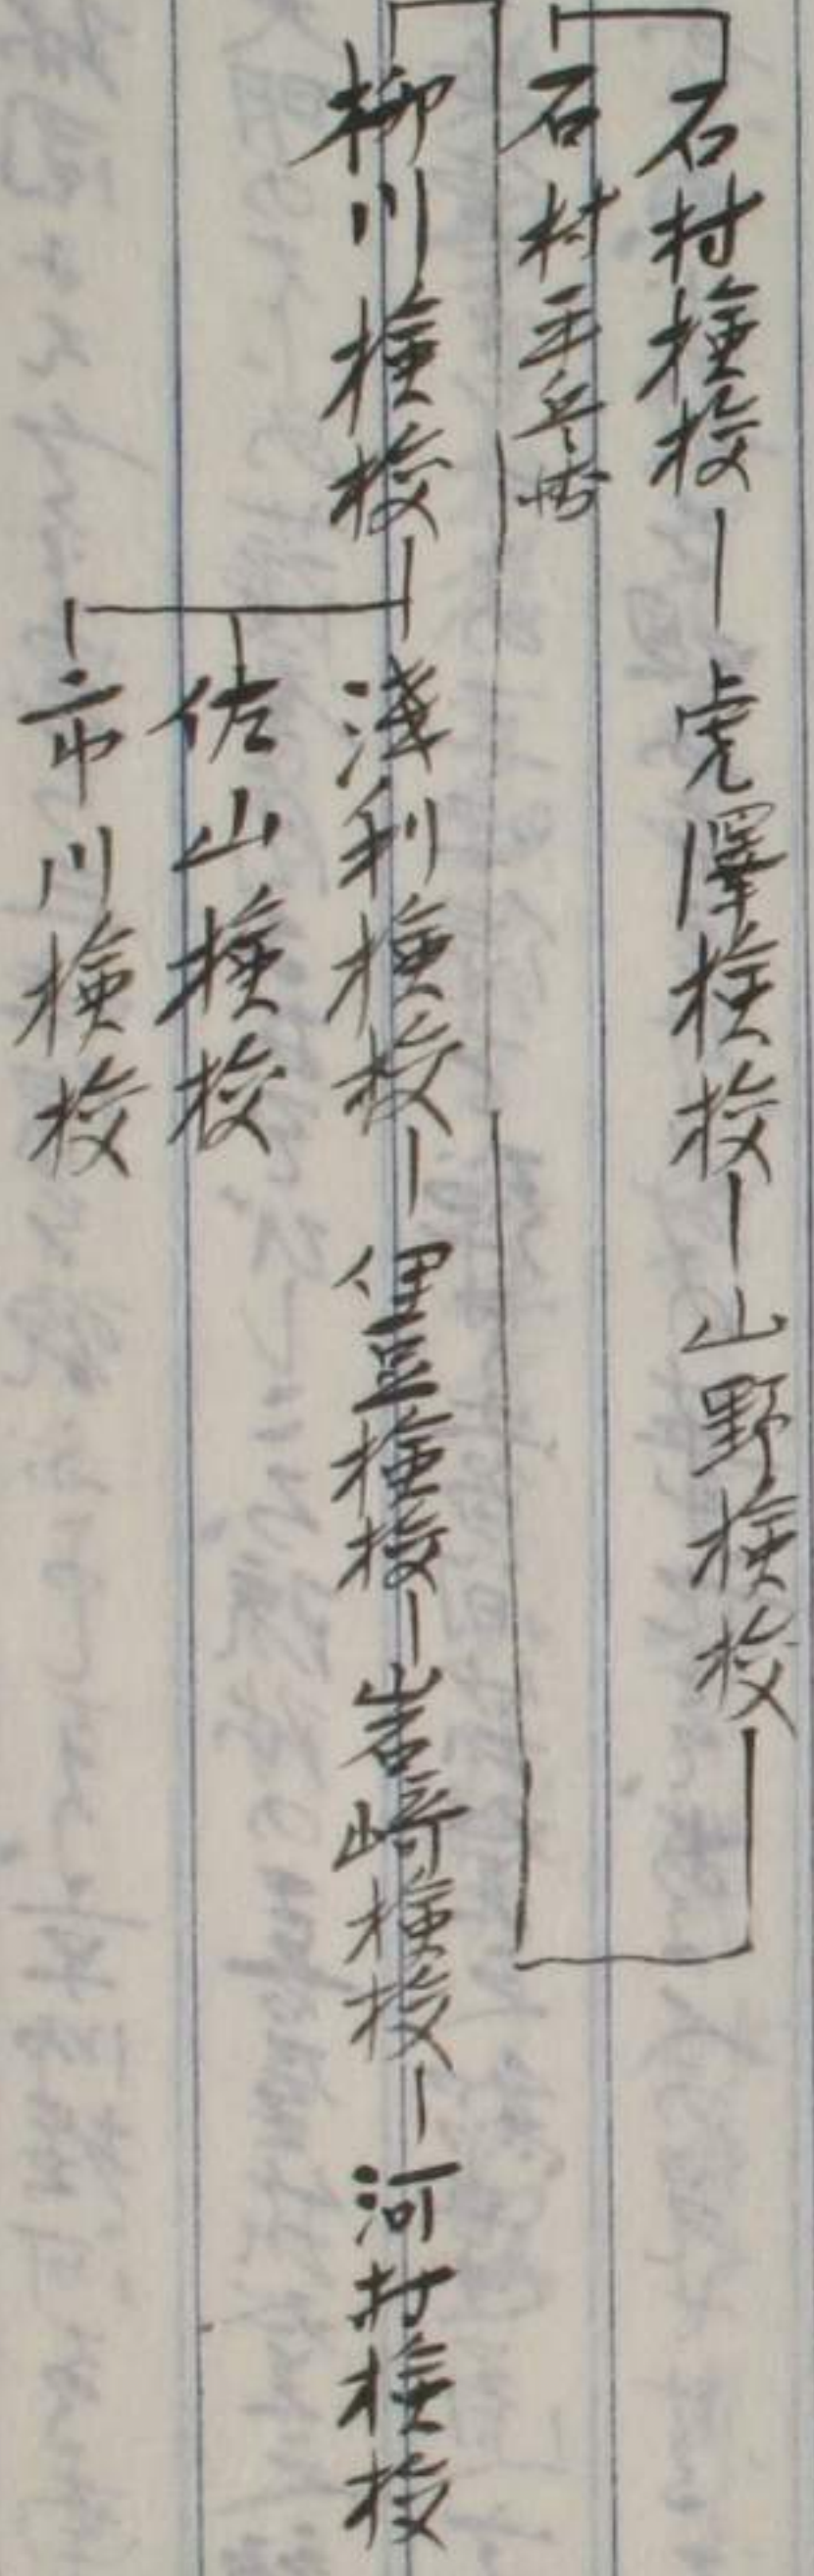 石村検校―虎澤検校―山野検校
石村平兵衛
柳川検校―浅利検校―伊豆検校―岩崎検校―河村検校
佐山検校
市川検校